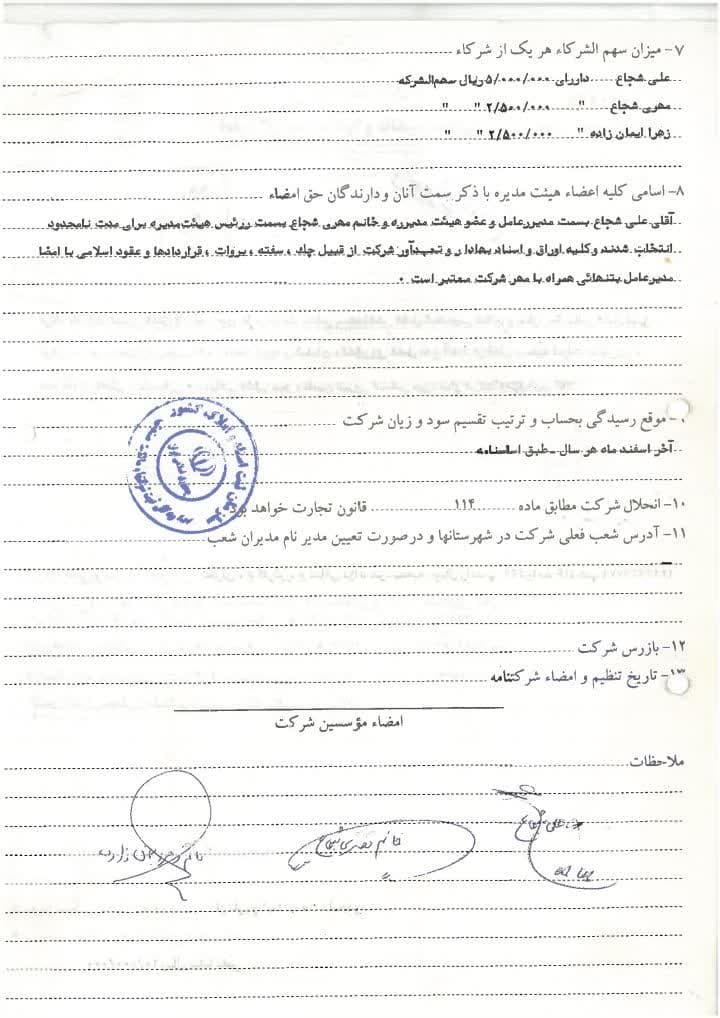 ۷- میزان سهم الشرکاء هر یک از شرکاء
علی شجاع دارای ۵/۰۰۰/۰۰۰ ریال سهم‌الشرکه
مهری شجاع " ۲/۵۰۰/۰۰۰ " "
زهرا ایمان زاده " ۲/۵۰۰/۰۰۰ " "
۸- اسامی کلیه اعضاء هیئت مدیره با ذکر سمت آنان و دارندگان حق امضاء
آقای علی شجاع بسمت مدیرعامل و عضو هیئت مدیره و خانم مهری شجاع بسمت رئیس هیئت‌مدیره برای مدت نامحدود
انتخاب شدند و کلیه اوراق و اسناد بهادار و تعهدآور شرکت از قبیل چك ، سفته ، بروات ، قراردادها و عقود اسلامی با امضا
مدیرعامل بتنهائی همراه با مهر شرکت معتبر است .
- موقع رسیدگی بحساب و ترتیب تقسیم سود و زیان شرکت
آخر اسفند ماه هر سال - طبق اساسنامه
۱۰- انحلال شرکت مطابق ماده ۱۱۴ قانون تجارت خواهد بود
۱۱- آدرس شعب فعلی شرکت در شهرستانها و درصورت تعیین مدیر نام مدیران شعب
۱۲- بازرس شرکت
۱۳- تاریخ تنظیم و امضاء شرکتنامه
امضاء مؤسسین شرکت
ملاحظات
علی شجاع
خانم مهری شجاع